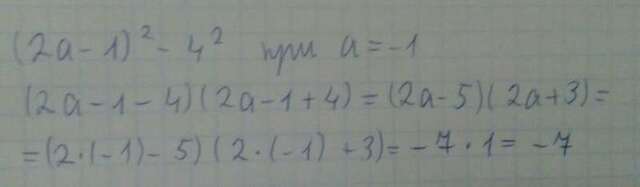 (2a - 1)² - 4² при a = -1
(2a - 1 - 4)(2a - 1 + 4) = (2a - 5)(2a + 3) =
= (2·(-1) - 5)(2·(-1) + 3) = -7·1 = -7